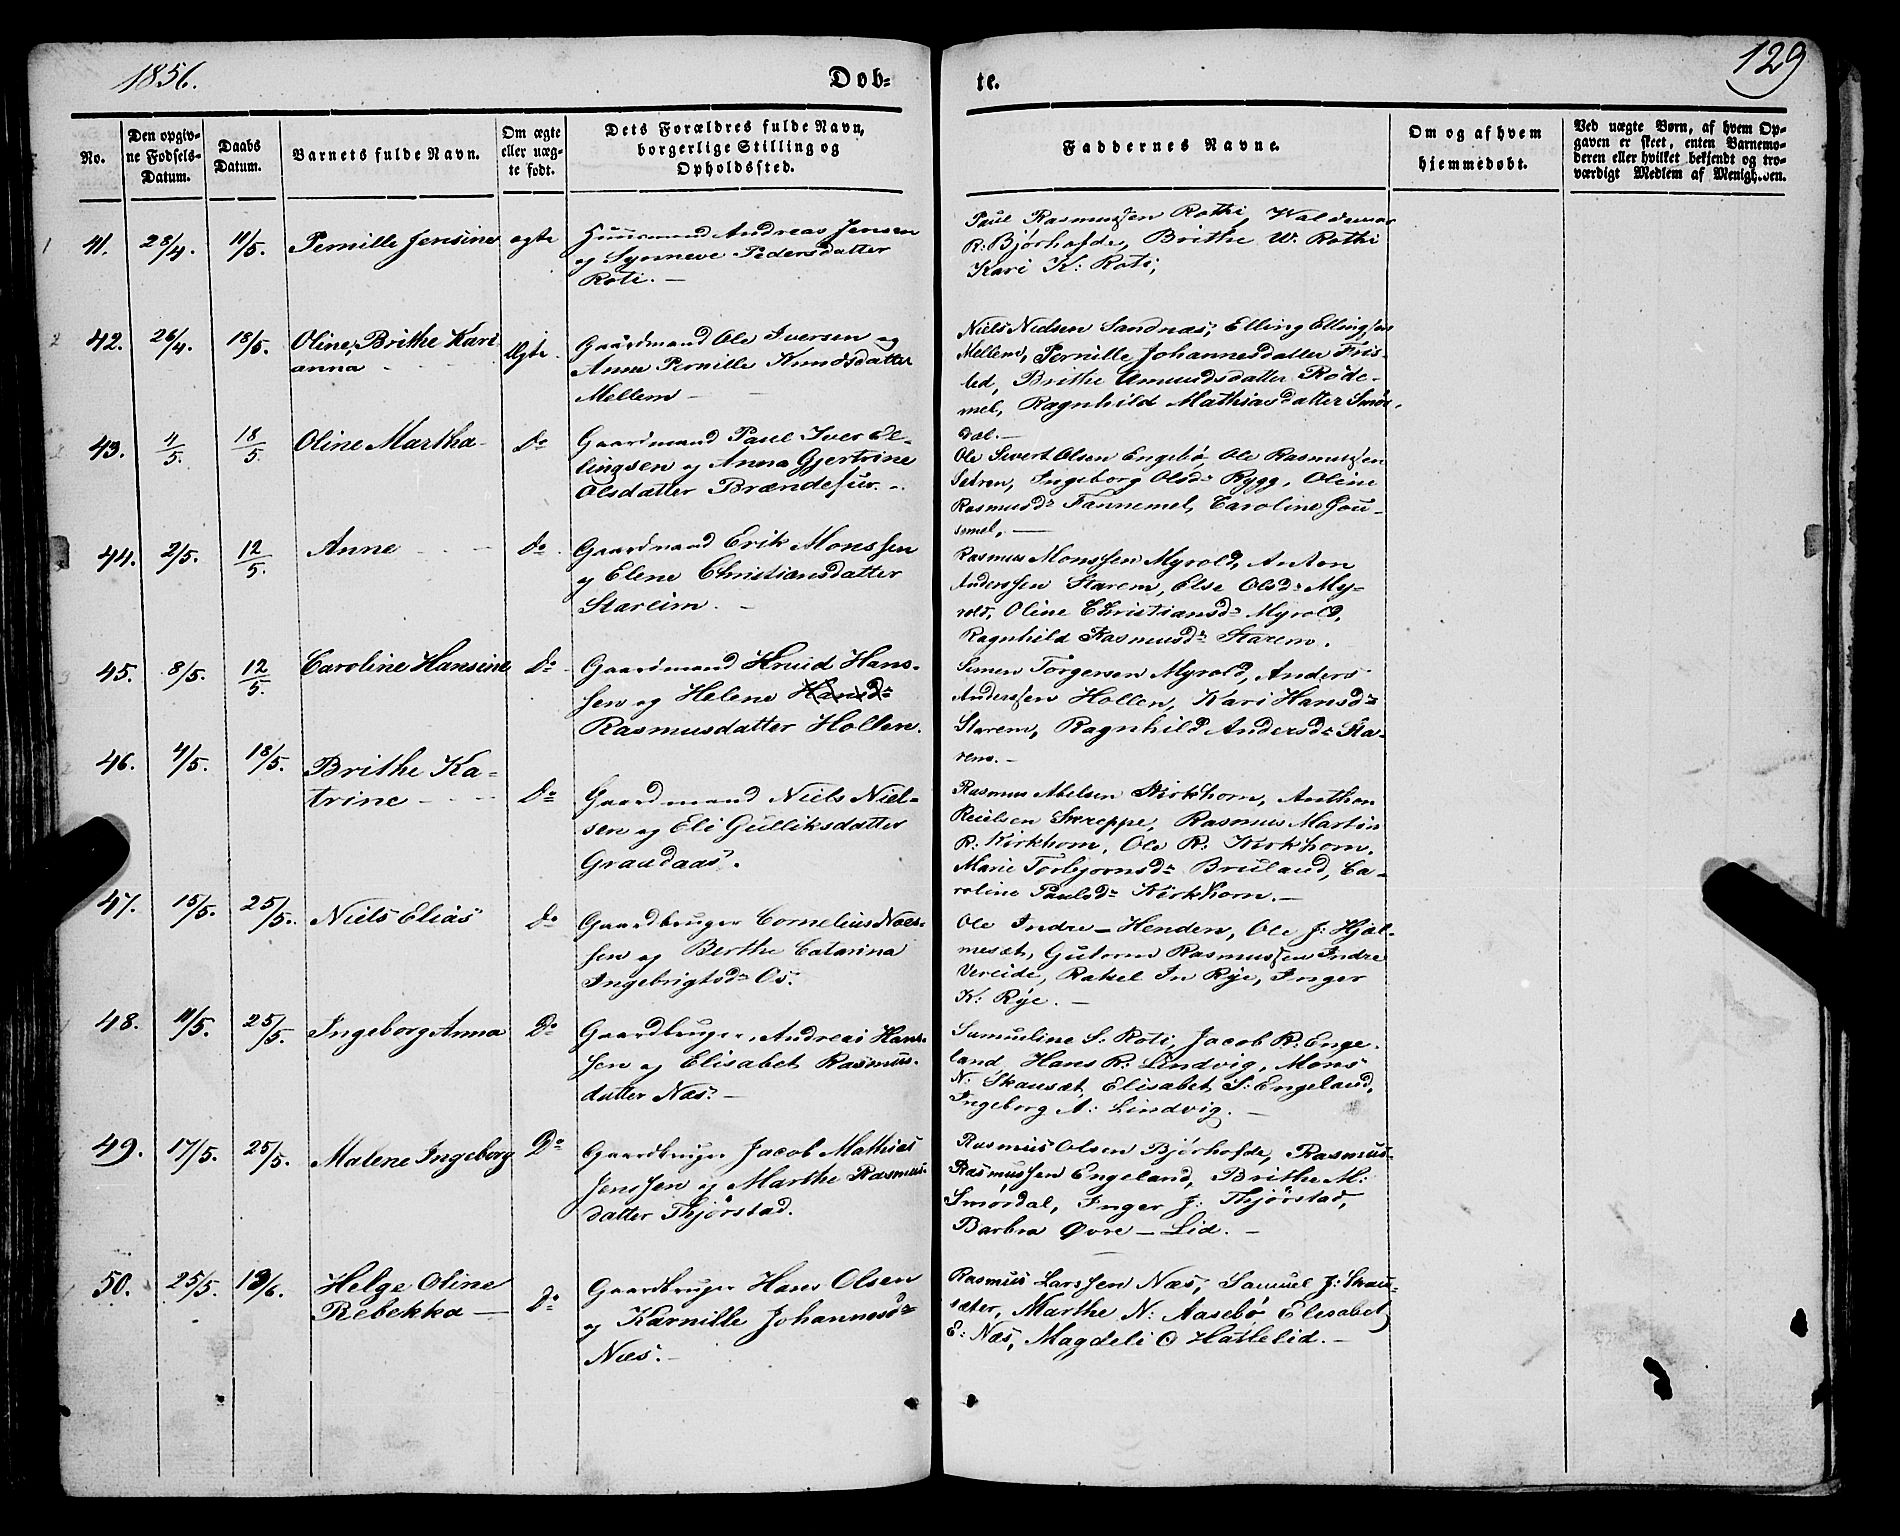 1856.
Døb-
te.
129
No.
Den opgiv-
ne Fødsels-
Datum.
Daabs
Datum.
Barnets fulde Navn.
Om ægte
eller uæg-
te født.
Dets Forældres fulde Navn,
borgerlige Stilling og
Opholdssted.
Faddernes Navne.
Om og af hvem
hjemmedøbt.
Ved uægte Børn, af hvem Op-
gaven er skeet, enten Barnemo-
deren eller hvilket bekjendt og tro-
værdigt Medlem af Menigheden.
41. 28/4. 11/5. Pernille Jensine ægte
Huusmand Andreas Jensen
og Synneve Pedersdatter
Roti. —
Paul Rasmussen Rothi, Waldemar
R: Bjørhofde, Brithe W. Rothi
Kari K: Roti,
42. 26/4. 18/5. Oline Brithe Kari
anna
Ægte.
Gaardmand Ole Iversen og
Anne Pernille Knudsdatter
Mellem —
Niels Nielsen Sandnæs, Elling Ellingsen
Mellem, Pernille Johannesdatter Fris-
led, Brithe Amundsdatter Röde-
mel, Ragnhild Mathiasdatter Smör-
dal. —
43. 11/5. 18/5. Oline Martha Do
Gaardmand Paul Iver El-
lingsen og Anna Gjertrine
Olsdatter Brændefur. —
Ole Sivert Olsen Engebø, Ole Rasmussen
Setren, Ingeborg Olsdr Rygg, Oline
Rasmusdr Fannemel, Caroline Gou-
semel, —
44. 2/5. 12/5. Anne Do
Gaardmand Erik Monssen
og Elene Christiansdatter
Stareim. —
Rasmus Monssen Myrold, Anton
Anderssen Starem, Else Olsdr My-
rold, Oline Christiansdr Myrold,
Ragnhild Rasmusdr Starem.
45. 8/5. 12/5. Caroline Hansine Do
Gaardmand Knud Hans-
sen og Helene Hansdr
Rasmusdatter Hollen.
Simen Torgersen Myrold, Anders
Anderssen Hollen, Kari Hansdr
Starem, Ragnhild Andersdr Sta-
rem. —
46. 4/5. 18/5. Brithe Ka-
trine
Do
Gaardmand Niels Niel-
sen og Eli Gulliksdatter
Graudaas.
Rasmus Abelsen Kirkhorn, Anthon
Skreppe, Rasmus Martin
R. Kirkhorn, Ole R. Kirkhorn,
Marie Torbjornsdr Bruland, Ca-
roline Paulsdr Kirkhorn. —
47. 15/5. 25/5. Niels Elias Do
Gaardbruger Cornelius Næs-
sen og Berthe Catarina
Ingebrigtsdr Os.
Ole Indre — Henden, Ole J: Hjæl-
mesæt, Gutorm Rasmussen Indre
Vereide, Rakel In Rÿe, Inger
K: Rÿe. —
48. 11/5. 25/5. Ingeborg Anna Do
Gaardbruger Andreas Hans-
sen og Elisabet Rasmus-
datter Næs. —
Samueline S. Roti, Jacob R: Enge-
land, Hans R. Lindvig, Mons
N: Skausæt, Elisabet S: Engeland,
Ingeborg A: Lindvig. —
49. 17/5. 25/5. Malene Ingeborg Do
Gaardbruger Jacob Mathias
Jenssen og Marthe Rasmus-
datter Thjørstad.
Rasmus Olsen Bjørhofde, Rasmus
Rasmussen Engeland, Brithe M:
Smørdal, Inger J: Thjørstad,
Barbra Øvre — Lid. —
50. 25/5. 13/6. Helge Oline
Rebekka —
Do
Gaardbruger Hans Olsen
og Karnille Johannesdr
Næs. —
Rasmus Larssen Næs, Samuel J: Skau-
sæter, Marthe N: Aasebø, Elisabet
E: Næs, Magdeli O Hattelid. —